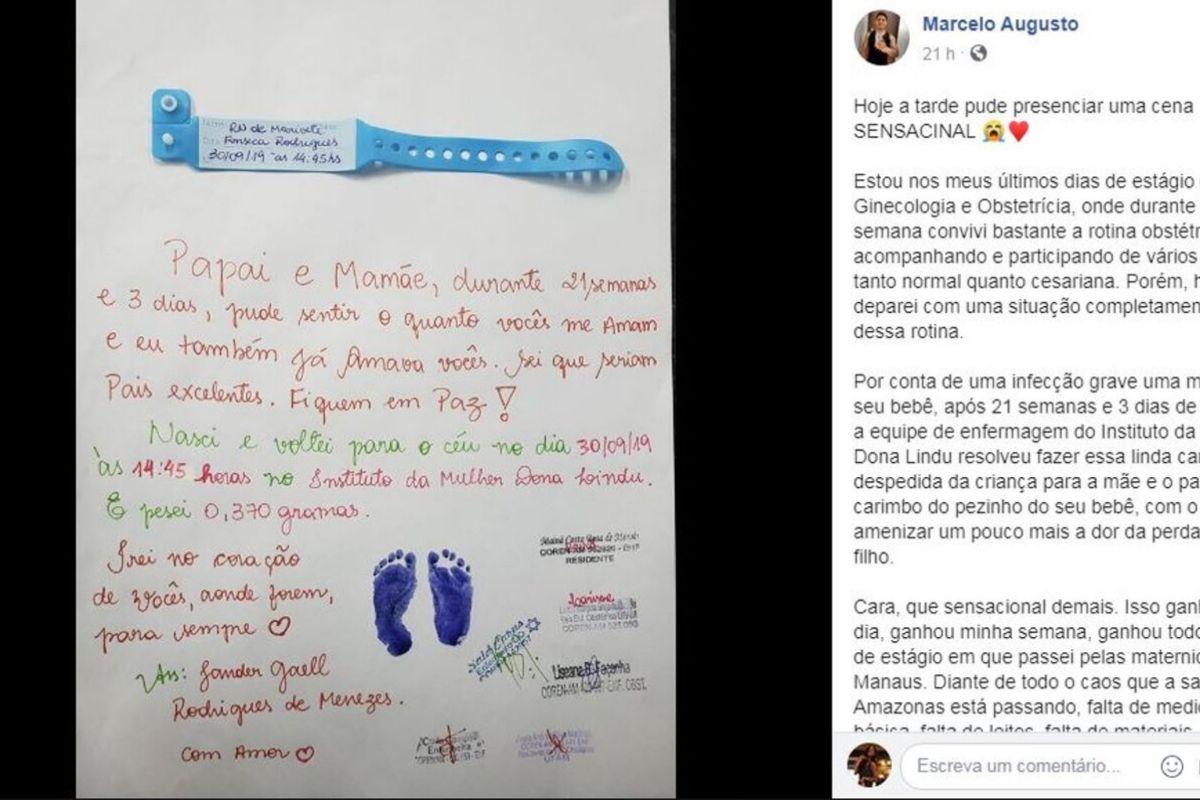 RN de Marivete
Fonseca Rodrigues
30/09/19 às 14:45hs
Papai e Mamãe, durante 21 semanas
e 3 dias, pude sentir o quanto vocês me Amam
e eu também já Amava vocês. Sei que seriam
Pais excelentes. Fiquem em Paz!
Nasci e voltei para o céu no dia 30/09/19
às 14:45 horas no Instituto da Mulher Dona Lindu.
E pesei 0,370 gramas.
Irei no coração
de vocês, aonde forem,
para sempre ♡
Ass: Sander Gaell
Rodrigues de Menezes.
Com Amor ♡
RESIDENTE
Marcelo Augusto
21 h ·
Hoje a tarde pude presenciar uma cena
SENSACINAL 😭❤️
Estou nos meus últimos dias de estágio
Ginecologia e Obstetrícia, onde durante
semana convivi bastante a rotina obstétr
acompanhando e participando de vários
tanto normal quanto cesariana. Porém, h
deparei com uma situação completamen
dessa rotina.
Por conta de uma infecção grave uma m
seu bebê, após 21 semanas e 3 dias de
a equipe de enfermagem do Instituto da
Dona Lindu resolveu fazer essa linda car
despedida da criança para a mãe e o pa
carimbo do pezinho do seu bebê, com o
amenizar um pouco mais a dor da perda
filho.
Cara, que sensacional demais. Isso ganh
dia, ganhou minha semana, ganhou todo
de estágio em que passei pelas maternid
Manaus. Diante de todo o caos que a sa
Amazonas está passando, falta de medic
básica, falta de leitos, falta de materiais,
Escreva um comentário...